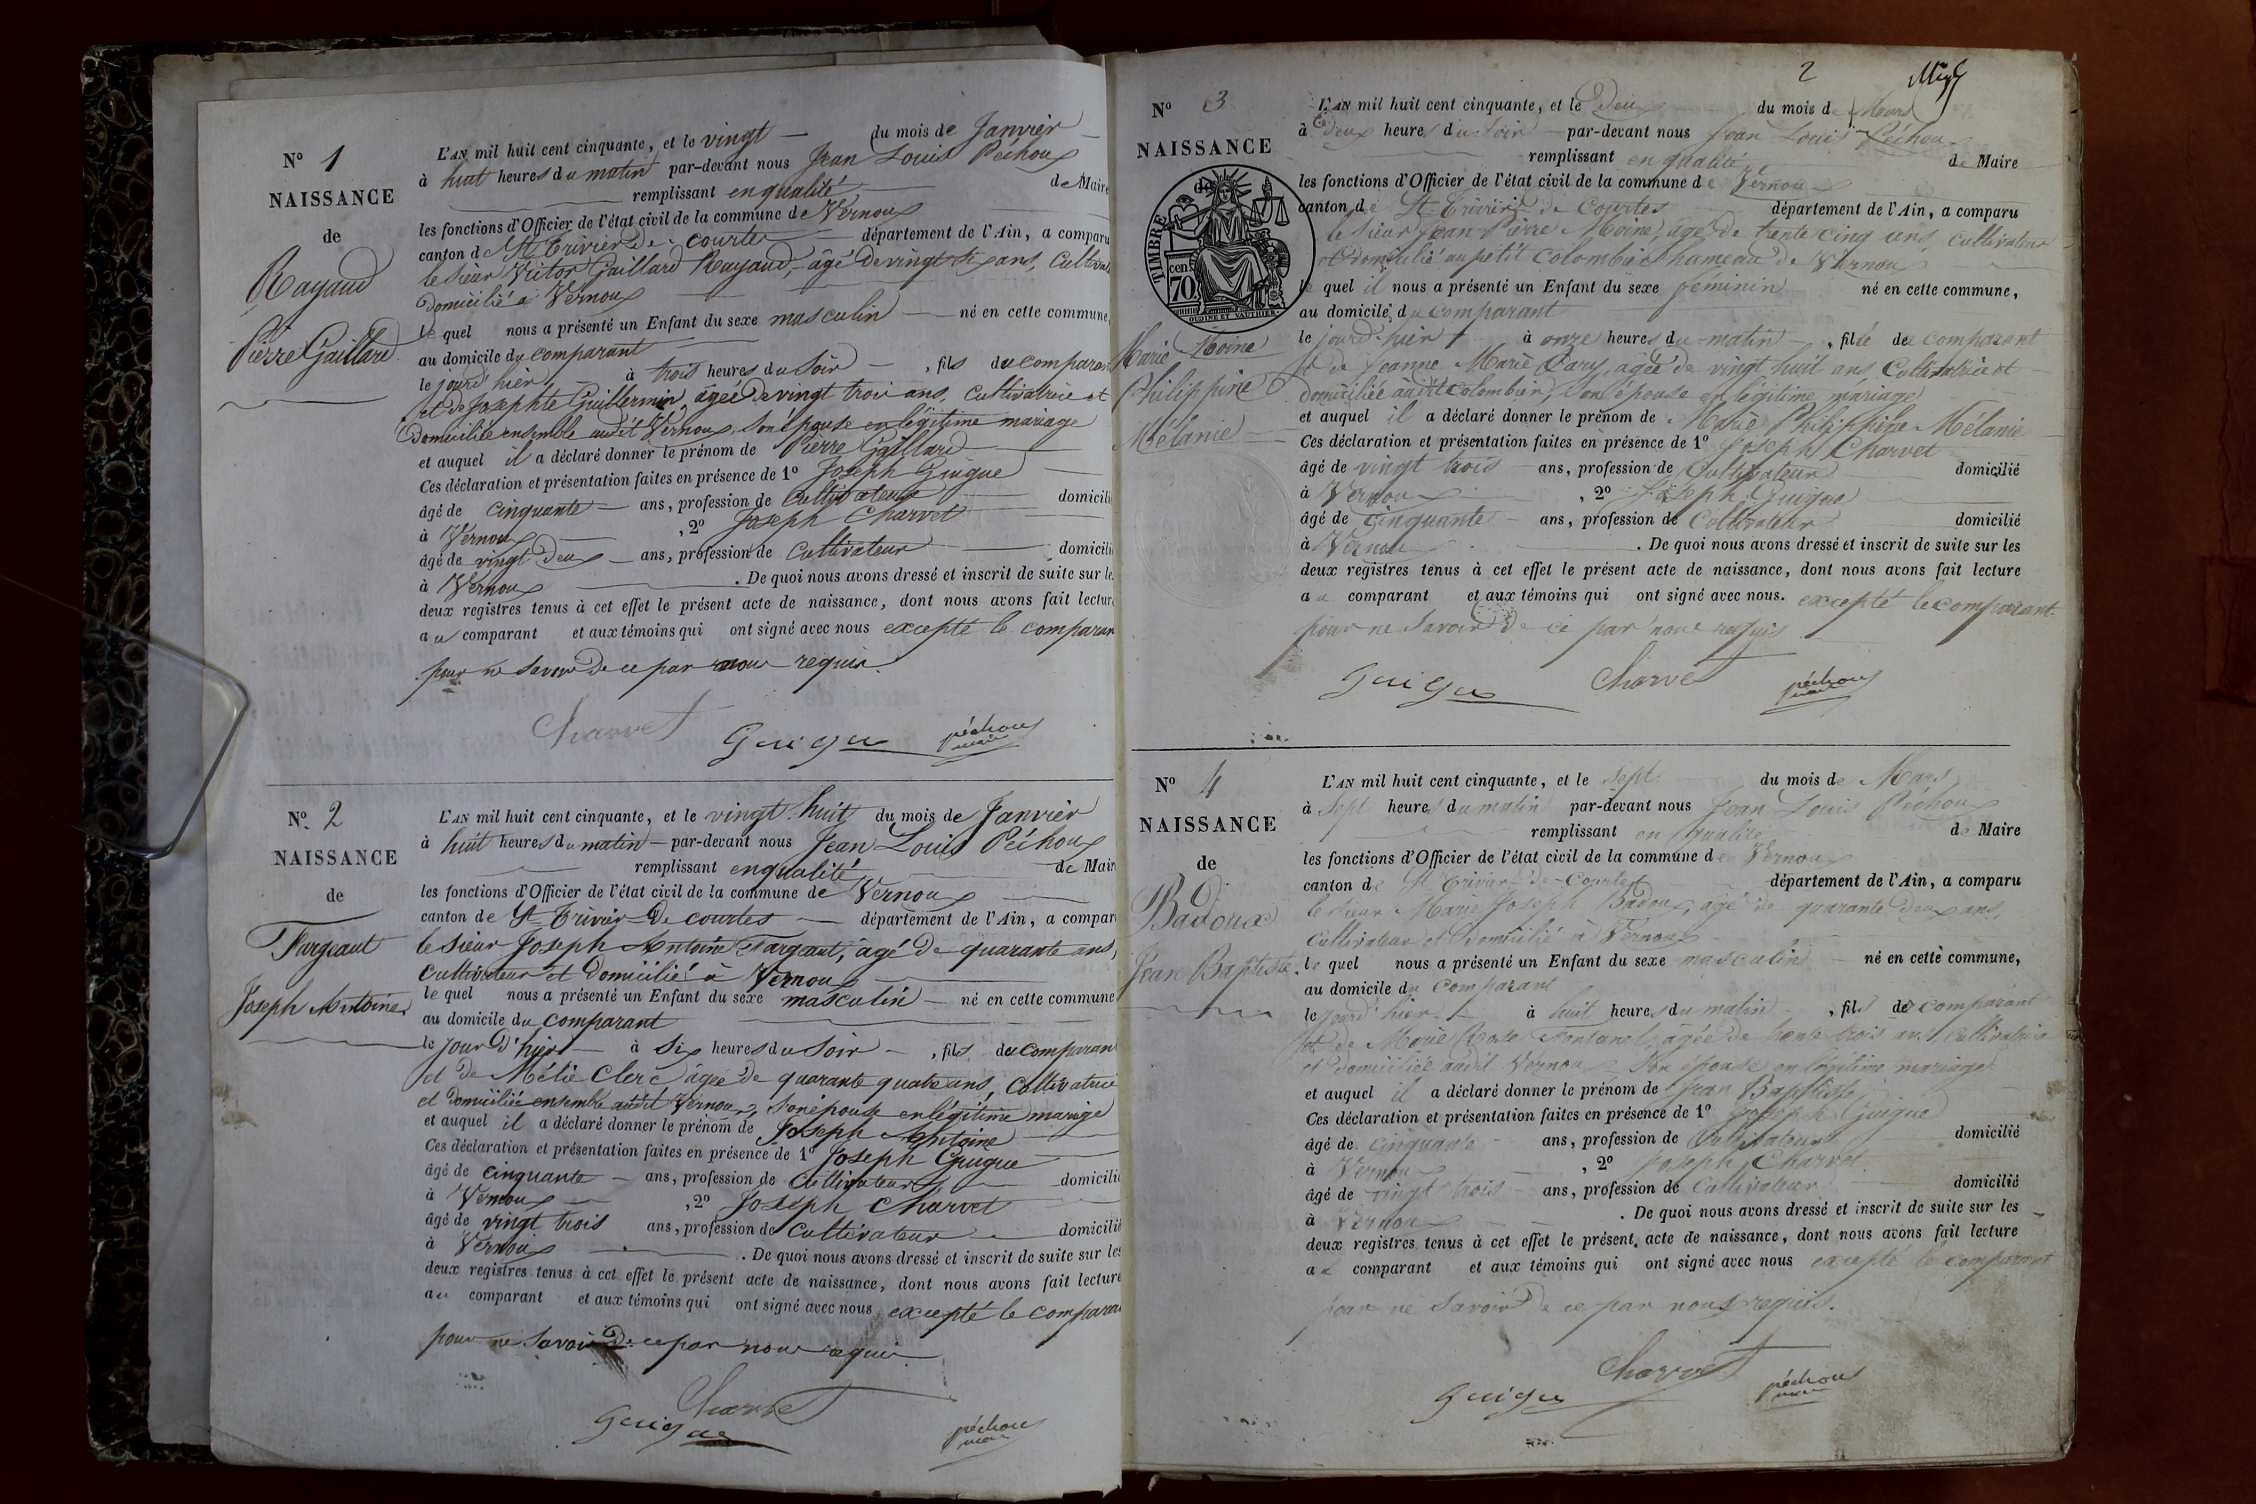 N° 1
NAISSANCE
de
Rayaud
Pierre Gaillard
L'AN mil huit cent cinquante, et le vingt du mois de Janvier
à huit heures du matin par-devant nous Jean Louis Péchoux
remplissant en qualité de Maire
les fonctions d'Officier de l'état civil de la commune de Vernoux
canton de St Trivier de courtes département de l'Ain, a comparu
le sieur Victor Gaillard Rayaud, âgé de vingt six ans, Cultivat
domicilié à Vernoux
le quel nous a présenté un Enfant du sexe masculin né en cette commune,
au domicile du comparant
le jourd'hier à trois heures du soir, fils du comparant
et de Josephte Guillermin, âgée de vingt trois ans, cultivatrice et
domiciliée ensemble audit Vernoux, son épouse en légitime mariage
et auquel il a déclaré donner le prénom de Pierre Gaillard
Ces déclaration et présentation faites en présence de 1° Joseph Guigue
âgé de cinquante ans, profession de Cultivateur domicili
à Vernoux, 2° Joseph Charvet
âgé de vingt deux ans, profession de cultivateur domicili
à Vernoux. De quoi nous avons dressé et inscrit de suite sur le
deux registres tenus à cet effet le présent acte de naissance, dont nous avons fait lecture
au comparant et aux témoins qui ont signé avec nous excepté le comparan
pour ne savoir de ce par nous requis.
Charvet Guigue péchoux maire
N° 2
NAISSANCE
de
Fargeaut
Joseph Antoine
L'AN mil huit cent cinquante, et le vingt huit du mois de Janvier
à huit heures du matin par-devant nous Jean Louis Péchoux
remplissant en qualité de Mair
les fonctions d'Officier de l'état civil de la commune de Vernoux
canton de St Trivier de courtes département de l'Ain, a compar
le sieur Joseph Antoine Fargeaut, âgé de quarante ans,
cultivateur et domicilié à Vernoux
le quel nous a présenté un Enfant du sexe masculin né en cette commune
au domicile du comparant
le jour d'hier à six heures du soir, fils du comparan
et de Mélie Clerc âgée de quarante quatre ans, Cultivatrice
et domiciliée ensemble audit Vernoux, son épouse en légitime mariage
et auquel il a déclaré donner le prénom de Joseph Antoine
Ces déclaration et présentation faites en présence de 1° Joseph Guigue
âgé de cinquante ans, profession de Cultivateur domicili
à Vernoux, 2° Joseph Charvet
âgé de vingt trois ans, profession de Cultivateur domicilié
à Vernoux. De quoi nous avons dressé et inscrit de suite sur les
deux registres tenus à cet effet le présent acte de naissance, dont nous avons fait lecture
au comparant et aux témoins qui ont signé avec nous excepté le comparan
pour ne savoir de ce par nous requis
Charvet
Guigue péchoux maire
2
N° 3
NAISSANCE
de
TIMBRE
70 cen
Marie Moine
Philippine
Mélanie
L'AN mil huit cent cinquante, et le Deux du mois de Mars
à deux heures du soir par-devant nous Jean Louis Péchoux
remplissant en qualité de Maire
les fonctions d'Officier de l'état civil de la commune de Vernoux
canton de St Trivier de Courtes département de l'Ain, a comparu
le sieur Jean Pierre Moine, âgé de trente cinq ans, cultivateur
et domicilié au petit Colombier hameau de Vernoux
le quel il nous a présenté un Enfant du sexe féminin né en cette commune,
au domicile du comparant
le jourd'hier à onze heures du matin, fille du comparant
et de Jeanne Marie Pary, âgée de vingt huit ans Cultivatrice et
domiciliée audit Colombier, son épouse en légitime mariage
et auquel il a déclaré donner le prénom de Marie Philippine Mélanie
Ces déclaration et présentation faites en présence de 1° Joseph Charvet
âgé de vingt trois ans, profession de Cultivateur domicilié
à Vernoux, 2° Joseph Guigue
âgé de cinquante ans, profession de Cultivateur domicilié
à Vernoux. De quoi nous avons dressé et inscrit de suite sur les
deux registres tenus à cet effet le présent acte de naissance, dont nous avons fait lecture
au comparant et aux témoins qui ont signé avec nous. excepté le comparant
pour ne savoir de ce par nous requis
Guigue Charvet péchoux maire
N° 4
NAISSANCE
de
Badoux
Jean Baptiste
L'AN mil huit cent cinquante, et le sept du mois de Mars
à sept heures du matin par-devant nous Jean Louis Péchoux
remplissant en qualité de Maire
les fonctions d'Officier de l'état civil de la commune de Vernoux
canton de St Trivier de Courtes département de l'Ain, a comparu
le sieur Marie Joseph Badoux, âgé de quarante deux ans,
Cultivateur et domicilié à Vernoux
le quel nous a présenté un Enfant du sexe masculin né en cette commune,
au domicile du comparant
le jourd'hier à huit heures du matin, fils du comparant
et de Marie Rose Fontanel, âgée de trente trois ans cultivatrice
et domiciliée audit Vernoux son épouse en légitime mariage
et auquel il a déclaré donner le prénom de Jean Baptiste
Ces déclaration et présentation faites en présence de 1° Joseph Guigue
âgé de cinquante ans, profession de Cultivateur domicilié
à Vernoux, 2° Joseph Charvet
âgé de vingt trois ans, profession de Cultivateur domicilié
à Vernoux. De quoi nous avons dressé et inscrit de suite sur les
deux registres tenus à cet effet le présent acte de naissance, dont nous avons fait lecture
au comparant et aux témoins qui ont signé avec nous excepté le comparant
pour ne savoir de ce par nous requis.
Guigue Charvet péchoux maire